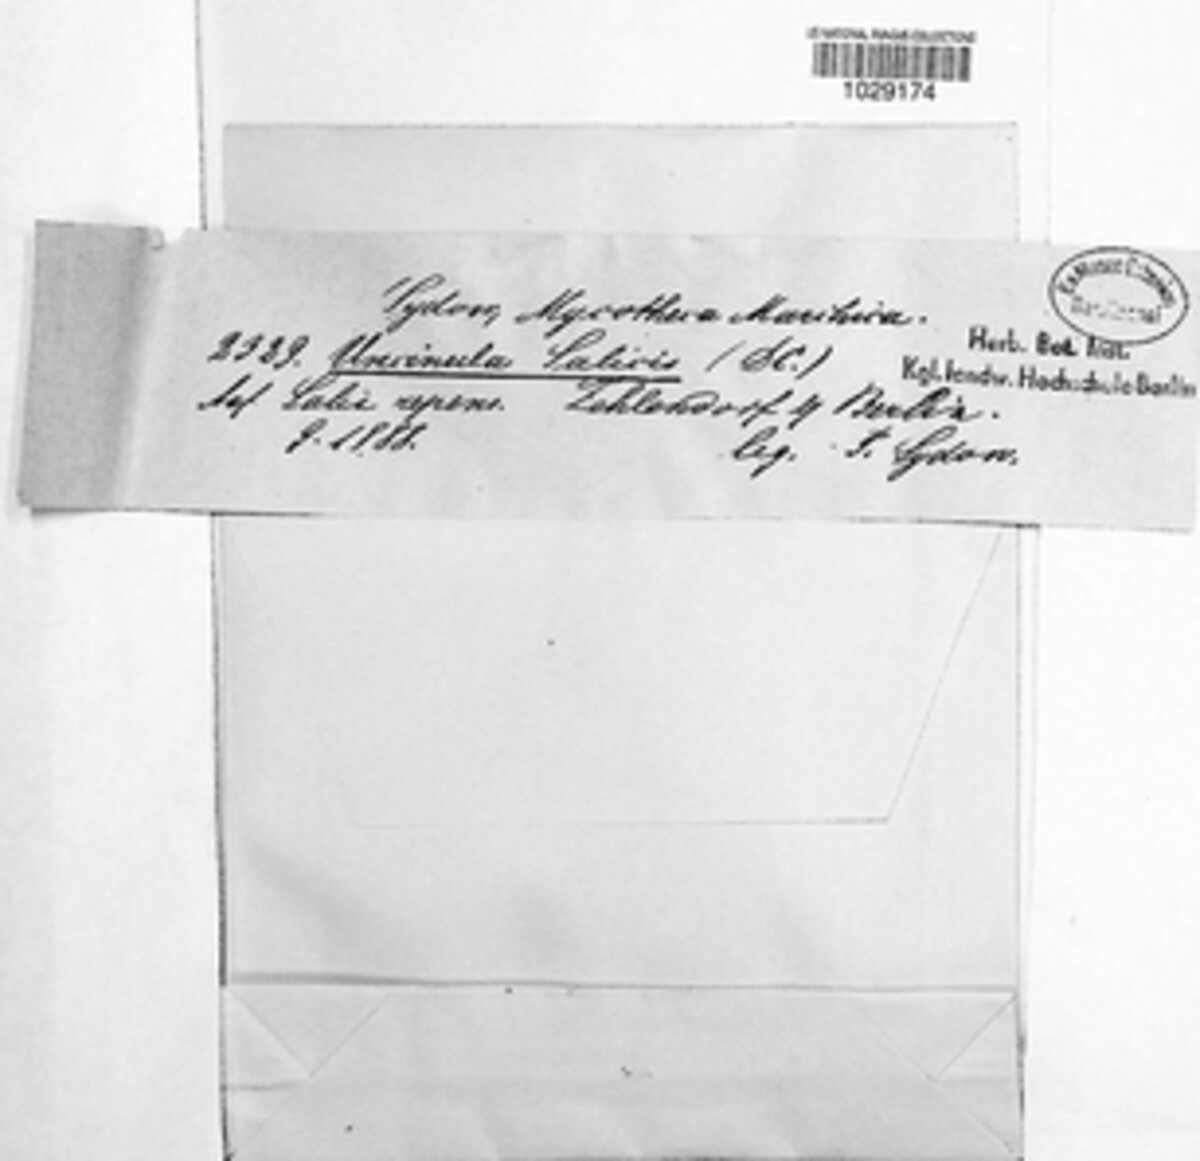 US NATIONAL FUNGUS COLLECTIONS
1029174
Sydow, Mycotheca Marchica.
2329. Uncinula Salicis (DC.)
Auf Salix repens. Zehlendorf b/ Berlin.
9. 1888. leg. P. Sydow.
Herb. Bot. Inst.
Kgl. landw. Hochschule Berlin